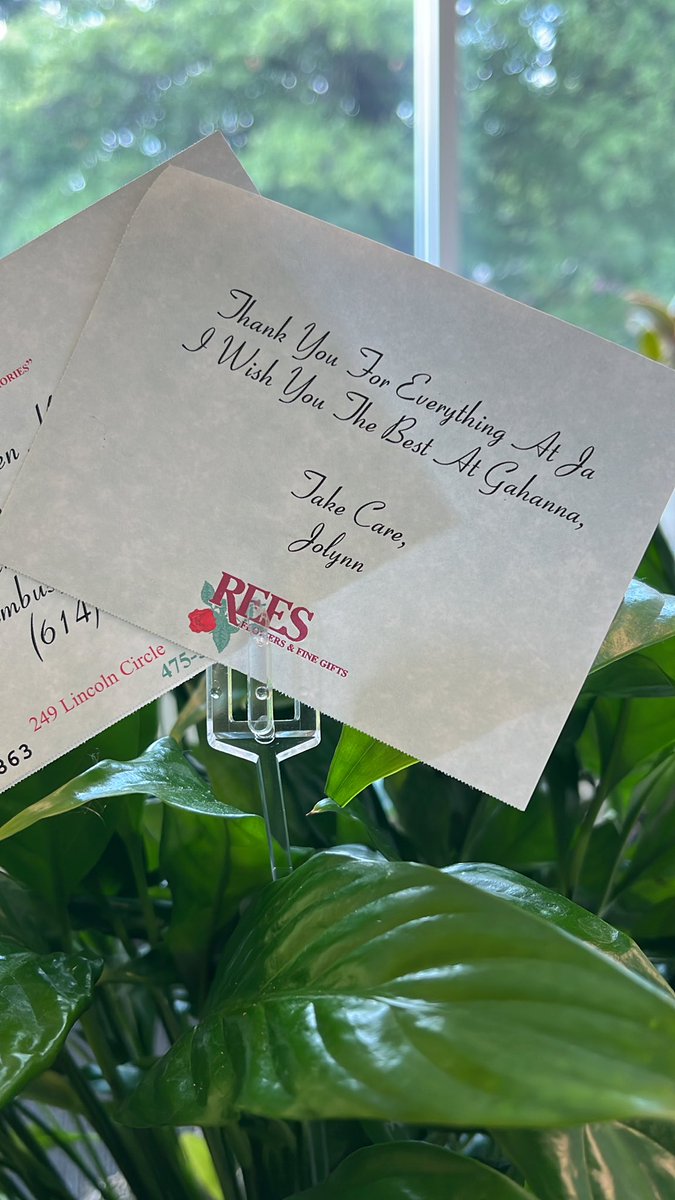 Thank You For Everything At Ja
I Wish You The Best At Gahanna,
Take Care,
Jolynn
REES
FLOWERS & FINE GIFTS
ORIES"
en
mbus
(614)
249 Lincoln Circle
475-
863